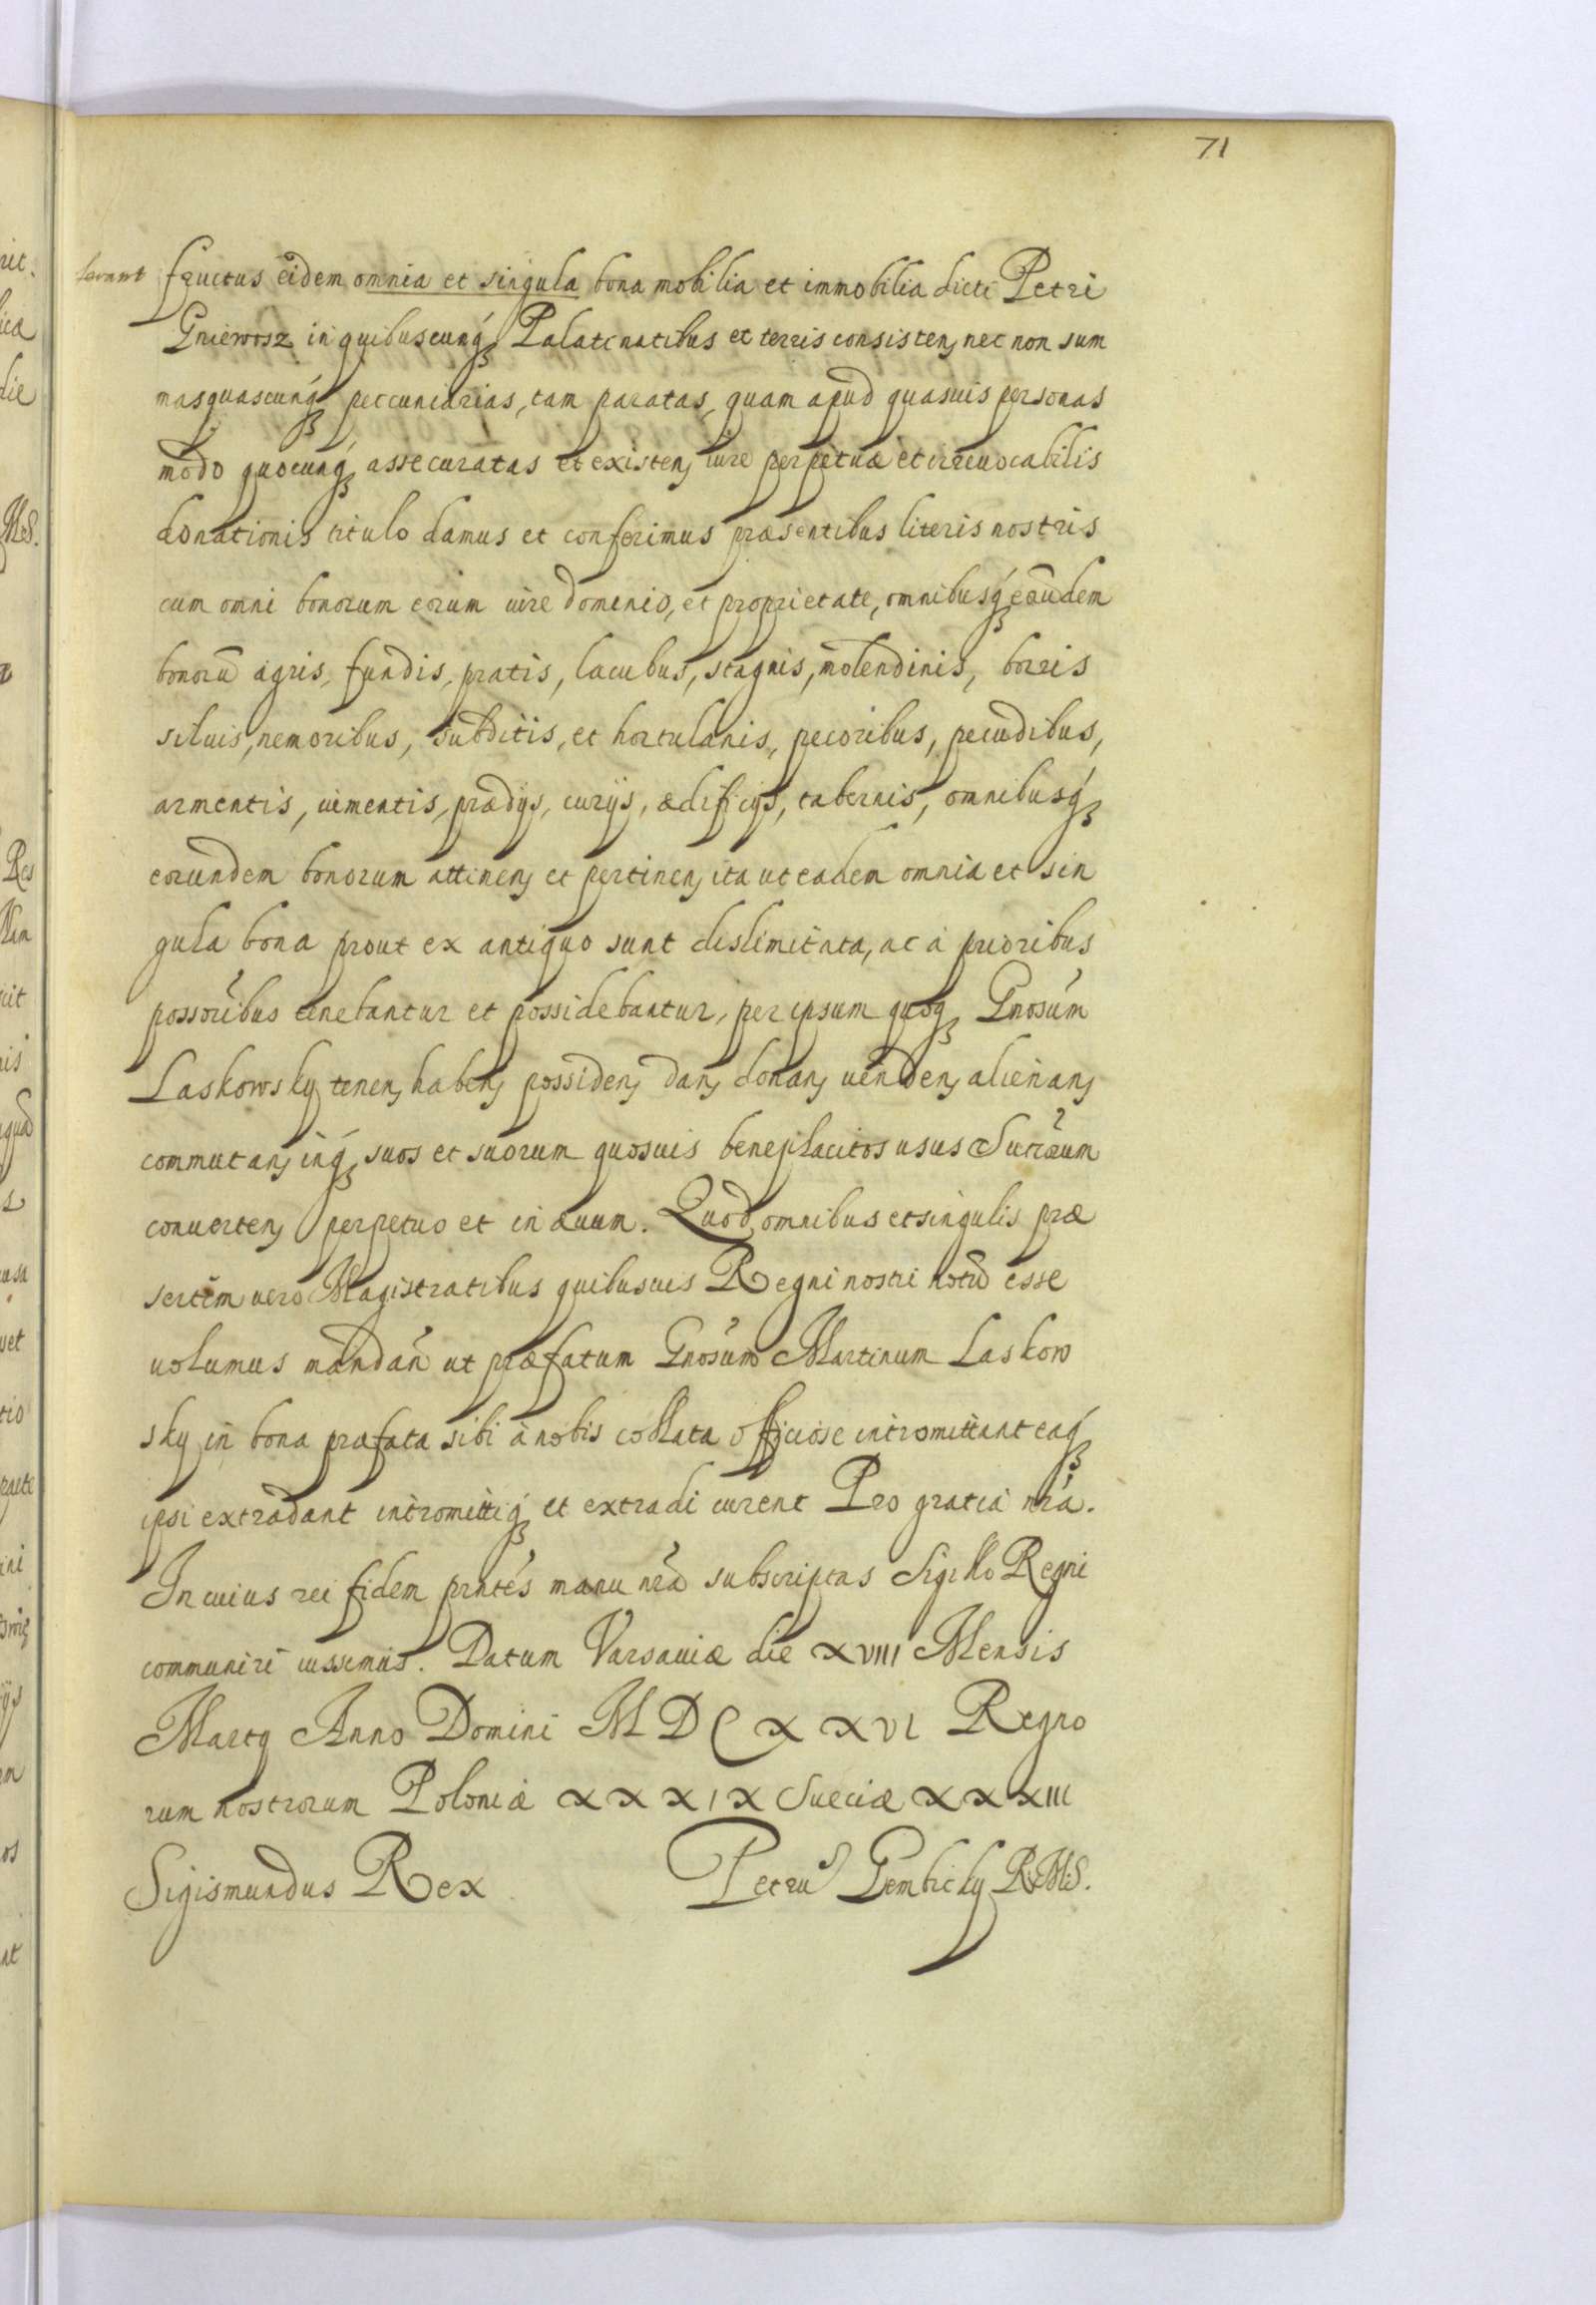 71
fructus eidem omnia et singula bona mobilia et immobilia dicti Petri
Gniewosz in quibuscunq́ꝫ Palatinatibus et terris consisten, nec non sum
masquascunq́ꝫ peccuniarias, tam paratas, quam apud quasuis personas
modo quocunq́ꝫ assecuratas et existen, iure perpetuæ et irreuocabilis
donationis titulo damus et conferimus præsentibus literis nostris
cum omni bonorum eorum iure dominio, et proprietate, omnibusq́ꝫ eorūdem
bonorū agris, fundis, pratis, lacubus, stagnis, molendinis, borris
siluis, nemoribus, subditis, et hortulanis, pecoribus, pecudibus,
armentis, iumentis, prædijs, curijs, ædificijs, tabernis, omnibusq́ꝫ
eorundem bonorum attinen, et pertinen, ita ut eadem omnia et sin
gula bona prout ex antiquo sunt dislimitata, ac à prioribus
possoribus tenebantur et possidebantur, per ipsum quoqꝫ Gnosum
Laskowsky tenen, haben, possiden, dan, donan, uenden, alienan,
commutan, inq́ꝫ suos et suorum quosuis beneplacitos usus Succorum
conuerten, perpetuo et in æuum. Quod omnibus et singulis præ
sertim uero Magistratibus quibusuis Regni nostri notū esse
uolumus mandan̄ ut præfatum Gnosum Martinum Laskow
sky in bona præfata sibi à nobis collata officiose intromittant eaq́ꝫ
ipsi extradant intromittiq́ꝫ et extradi curent Pro gratia nrā.
In cuius rei fidem pntes manu nrā subscriptas Sigillo Regni
communiri iussimus. Datum Varsauiæ die XVIII Mensis
Martij Anno Domini MDCXXVI Regno
rum nostrorum Poloniæ XXXIX Sueciæ XXXIII
Sigismundus Rex Petrus Gembicky R.M.S.